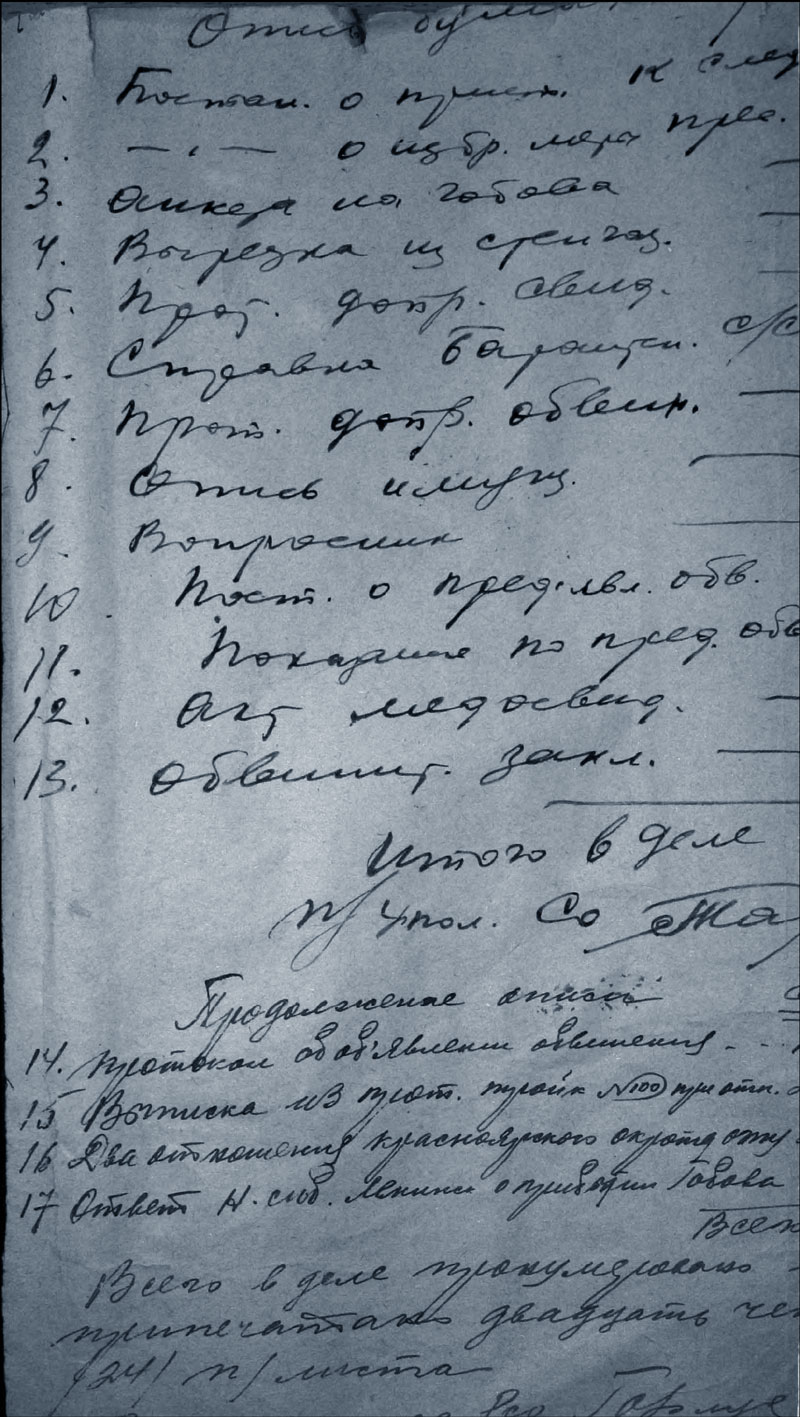 Опись бумаг
1. Постан. о прин. к след
2. — " — о избр. меры прес.
3. Анкета на Габова
4. Вырезка из стенгаз.
5. Прот. допр. свид.
6. Справка с/с
7. Прот. допр. обвин.
8. Опись имущ.
9. Вопросник
10. Пост. о пред'явл. обв.
11. Показание по пред. обв
12. Акт медосвид.
13. Обвинит. закл.
Итого в деле
п/Упол. СО
Продолжение описи
14. Протокол об об'явлении обвинения
15 Выписка из прот. тройк №100 при отн.
16 Два отношения красноярского окротд
17 Ответ Н. о Габова
Всег
Всего в деле пронумеровано
припечатано двадцать че
/24/ п/листа